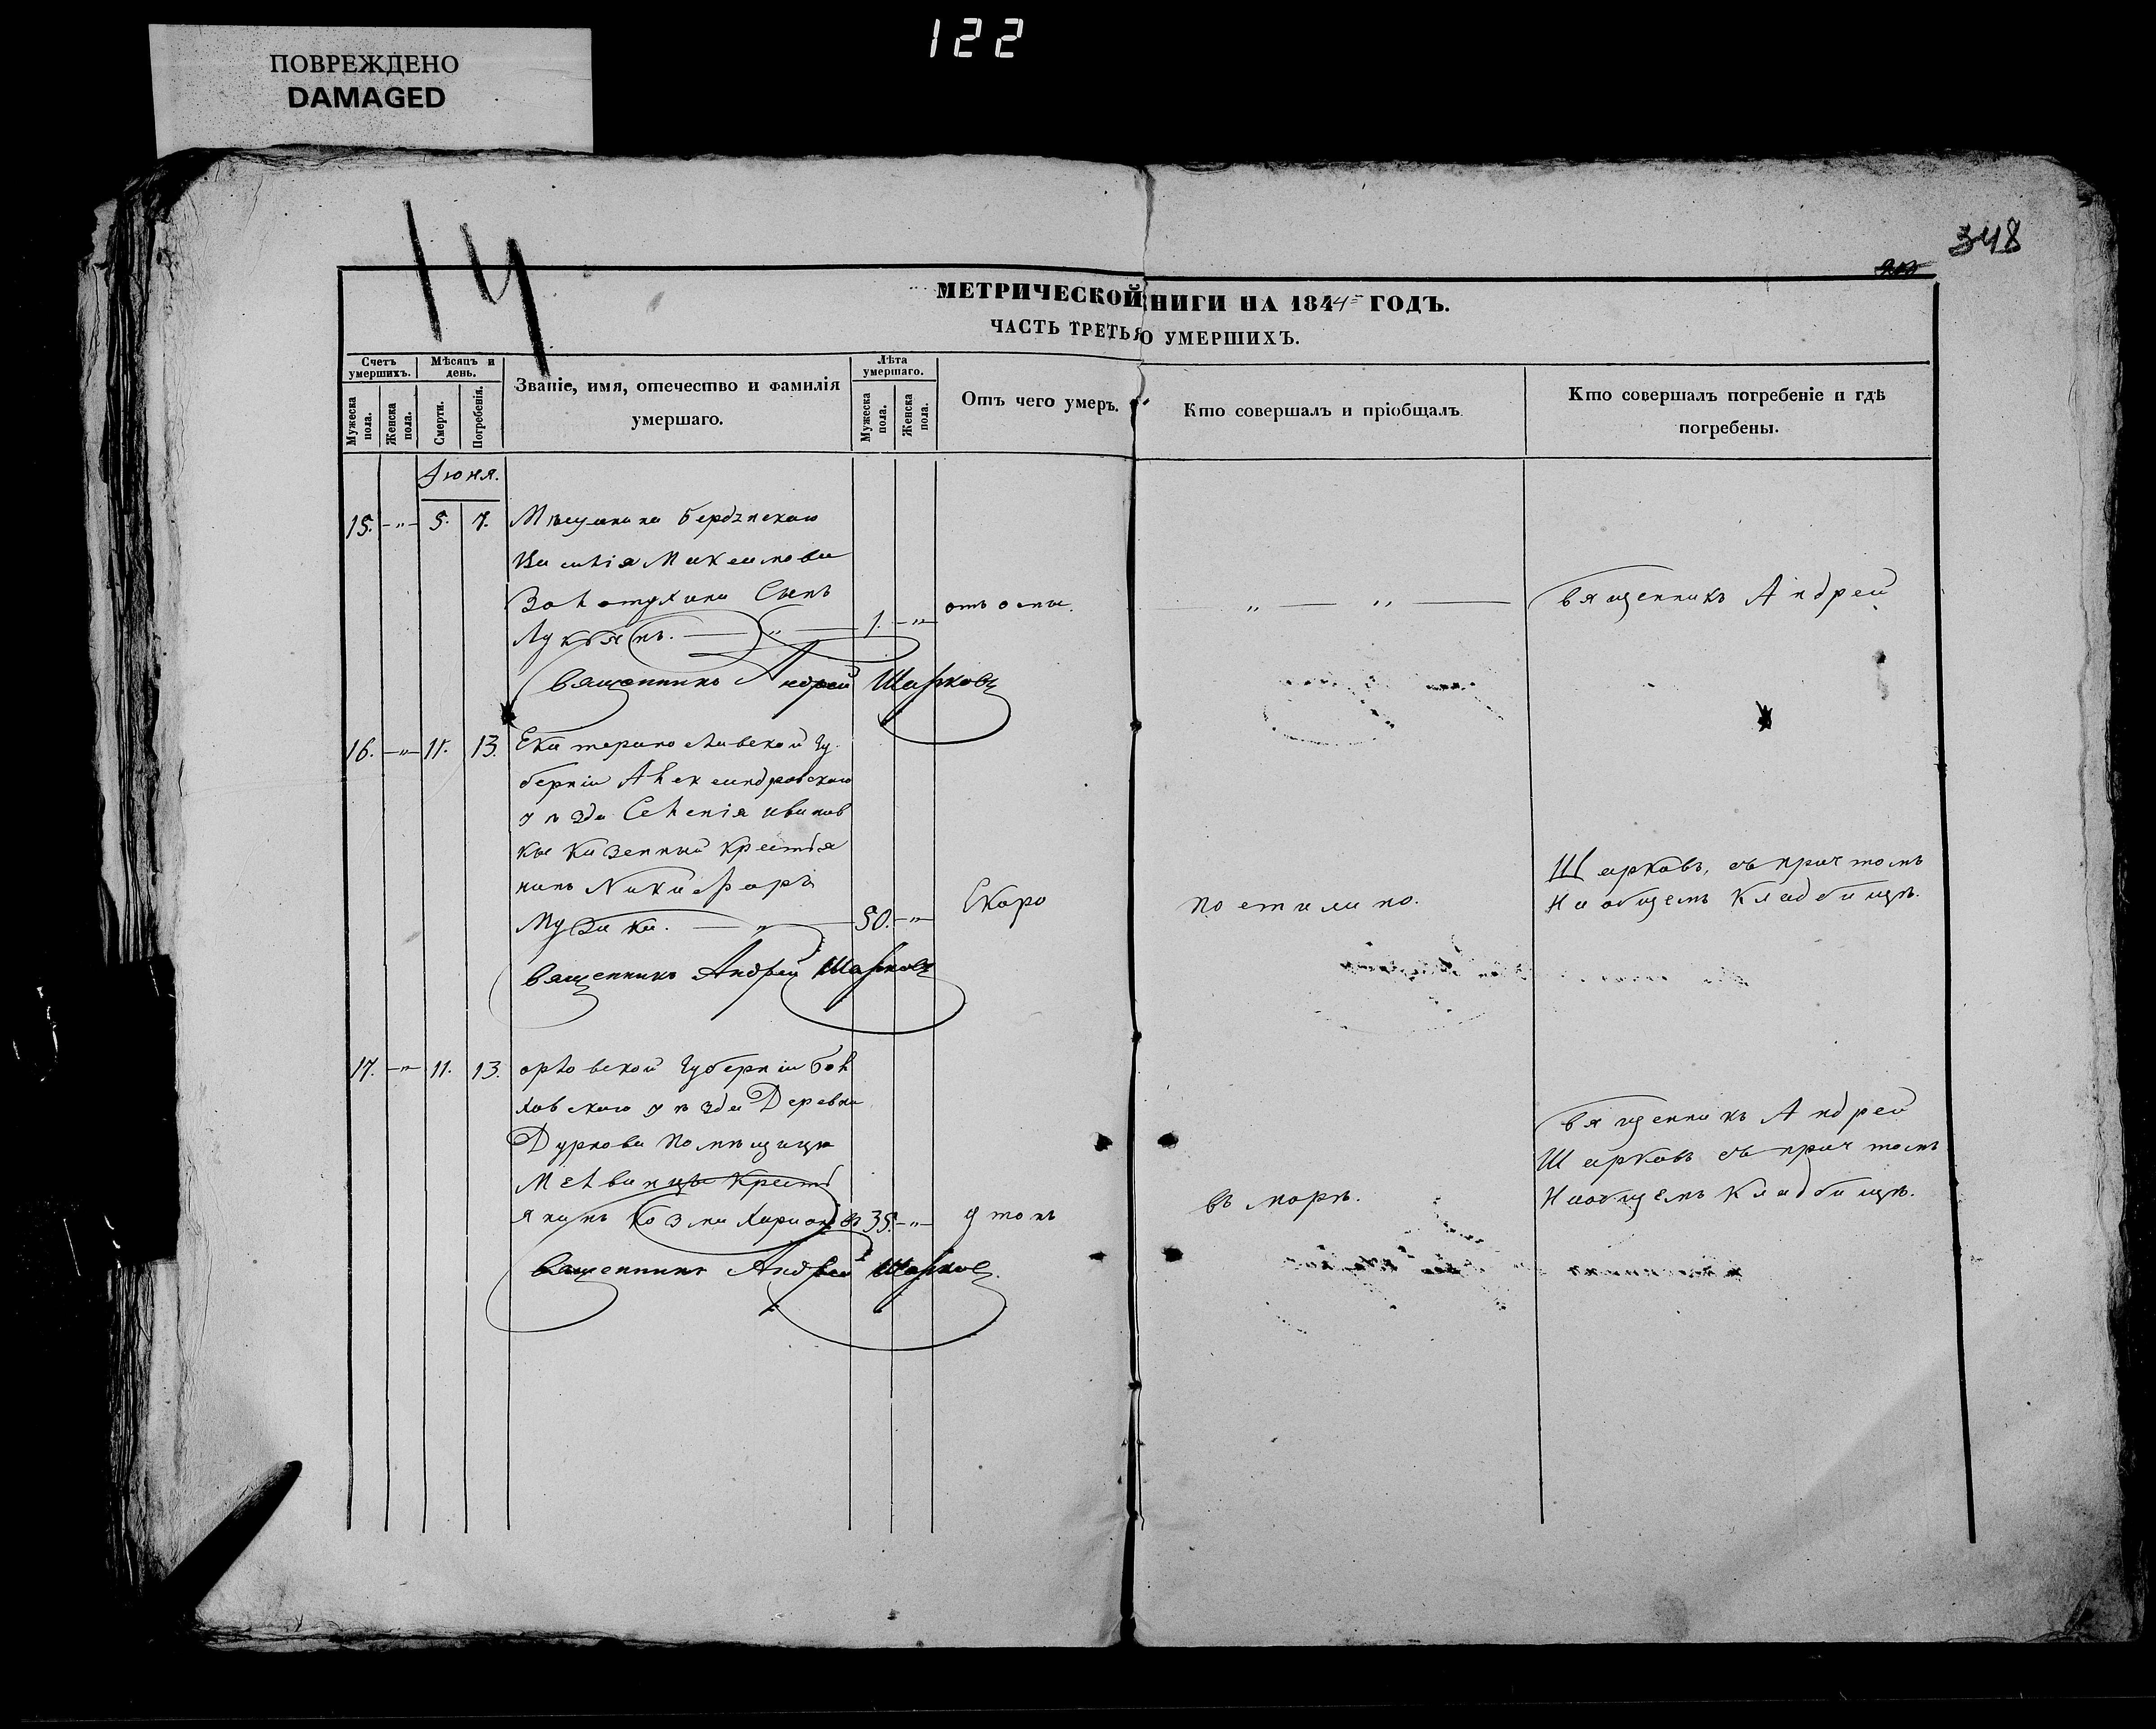 122
ПОВРЕЖДЕНО
DAMAGED
348
14
МЕТРИЧЕСКОЙ НИГИ НА 1844 ГОДЪ.
ЧАСТЬ ТРЕТЬЯ О УМЕРШИХЪ.
Счетъ умершихъ.
Мѣсяцъ и день.
Званіе, имя, отечество и фамилія умершаго.
Лѣта умершаго.
Отъ чего умеръ.
Кто совершалъ и пріобщалъ
Кто совершалъ погребеніе и гдѣ погребены.
Мужеска пола.
Женска пола.
Смерти.
Погребенія.
Мужеска пола.
Женска пола.
Іюня.
15. -„- 5. 7. Мѣщанина Бердянскаго
Василія Максимова
Золотухина Сынъ
Лукьянъ. — „ — 1. -„- отъ оспы. „ — „ — Священникъ Андрей
Священникъ Андрей Шарковъ
16. -„- 11. 13. Екатеринославской Гу
берніи Александровскаго
уѣзда Селенія Иванов
ки Казенный Крестья
нинъ Никифоръ
Музыка. — „ — 50. -„- Скоро постижно. Шарковъ, съ причтомъ
На общемъ Кладбищѣ.
Священникъ Андрей Шарковъ
17. -„- 11. 13. Орловской Губерніи Бол
ховскаго уѣзда Деревни
Дурнова Помѣщицы
Крестья
янинъ Козма 35. -„- утонъ въ морѣ. Священникъ Андрей
Шарковъ съ причтомъ
На общемъ Кладбищѣ.
Священникъ Андрей Шарковъ